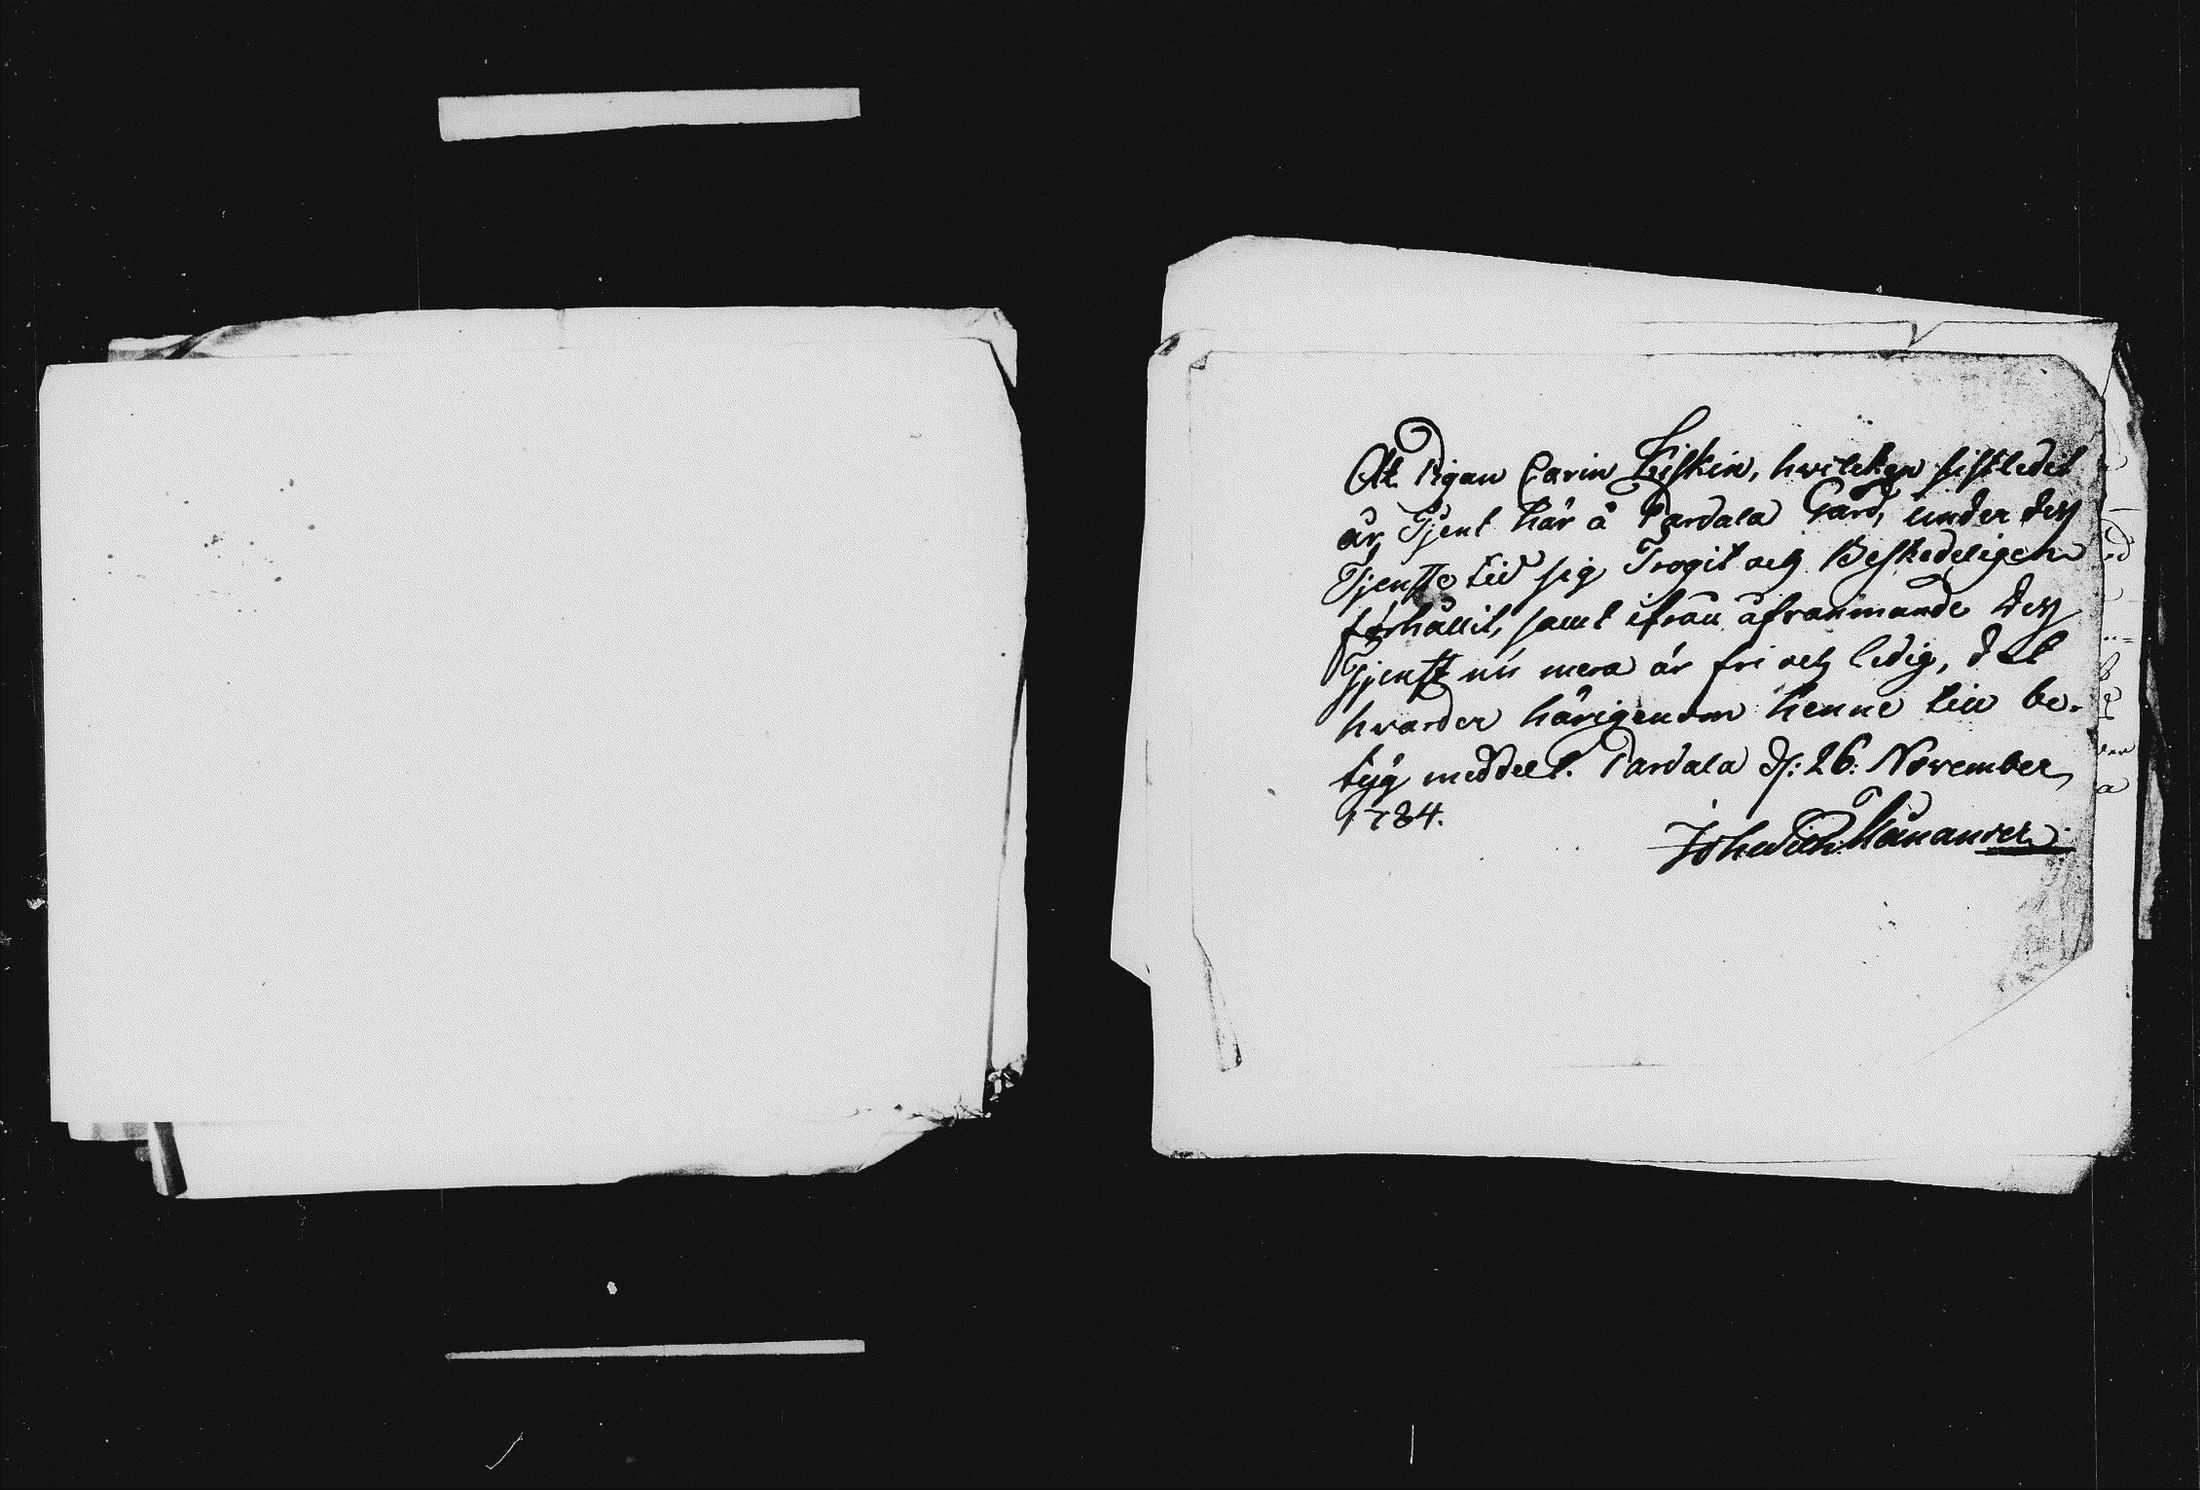 At Pigan Carin Leskin, hwilcken sistledet
år Tjent här å Pardala Gård, under dess
Tjenste tid sig Trogit och Beskedeligen
förhållit, samt ifrån afvanmände dess
Tjenst nu mera är fri och ledig, det
hvarder härigenom henne till be-
tyg meddelt. Pardala d: 26: November
1784.